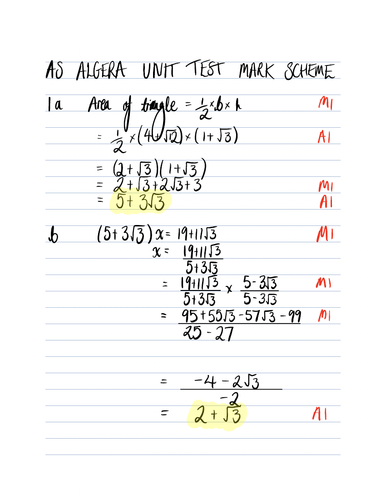 AS ALGERA UNIT TEST MARK SCHEME
1a Area of triangle = 1/2 × b × h M1
= 1/2 × (4+√12) × (1+√3) A1
= (2+√3)(1+√3)
= 2+√3+2√3+3 M1
= 5+3√3 A1
b (5+3√3)x = 19+11√3 M1
x = 19+11√3 / 5+3√3
= 19+11√3 / 5+3√3 × 5-3√3 / 5-3√3 M1
= 95+55√3-57√3-99 / 25-27 M1
= -4-2√3 / -2
= 2+√3 A1